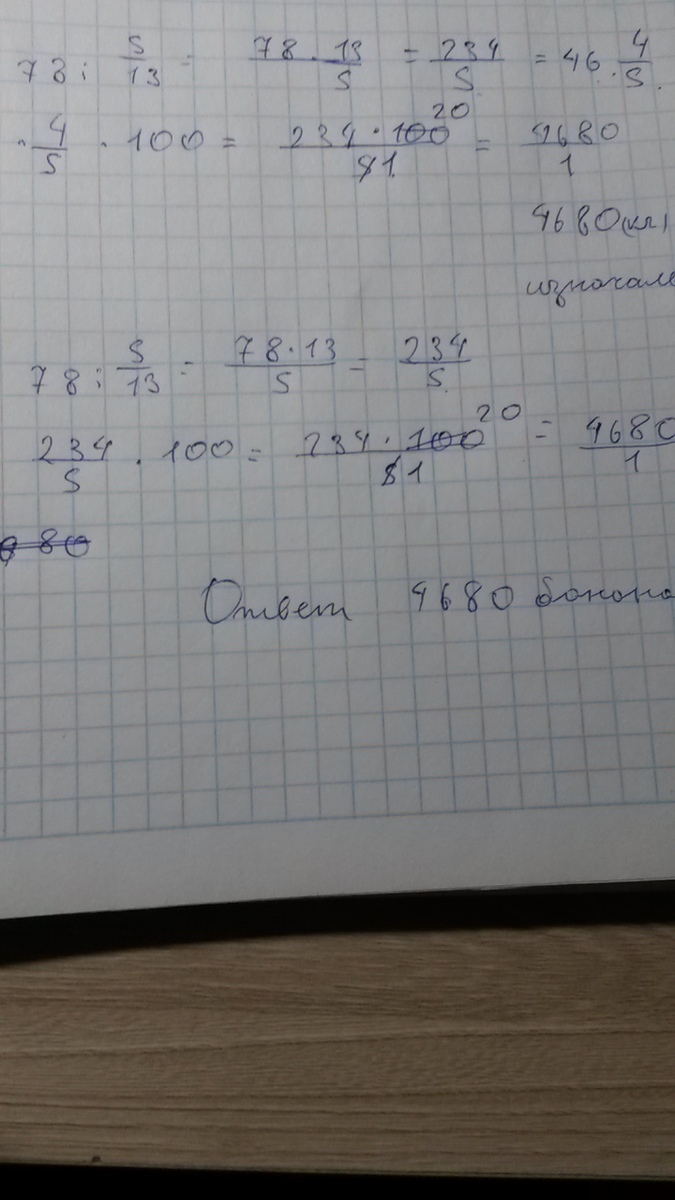 78 : 5/13 = 78 · 13/5 = 234/5 = 46 · 4/5
· 4/5 · 100 = 234 · 100 20/5 1 = 4680/1
4680 (кг)
изначаль
78 : 5/13 = 78 · 13/5 = 234/5
234/5 · 100 = 234 · 100 20/5 1 = 4680/1
80
Ответ 4680 бонона